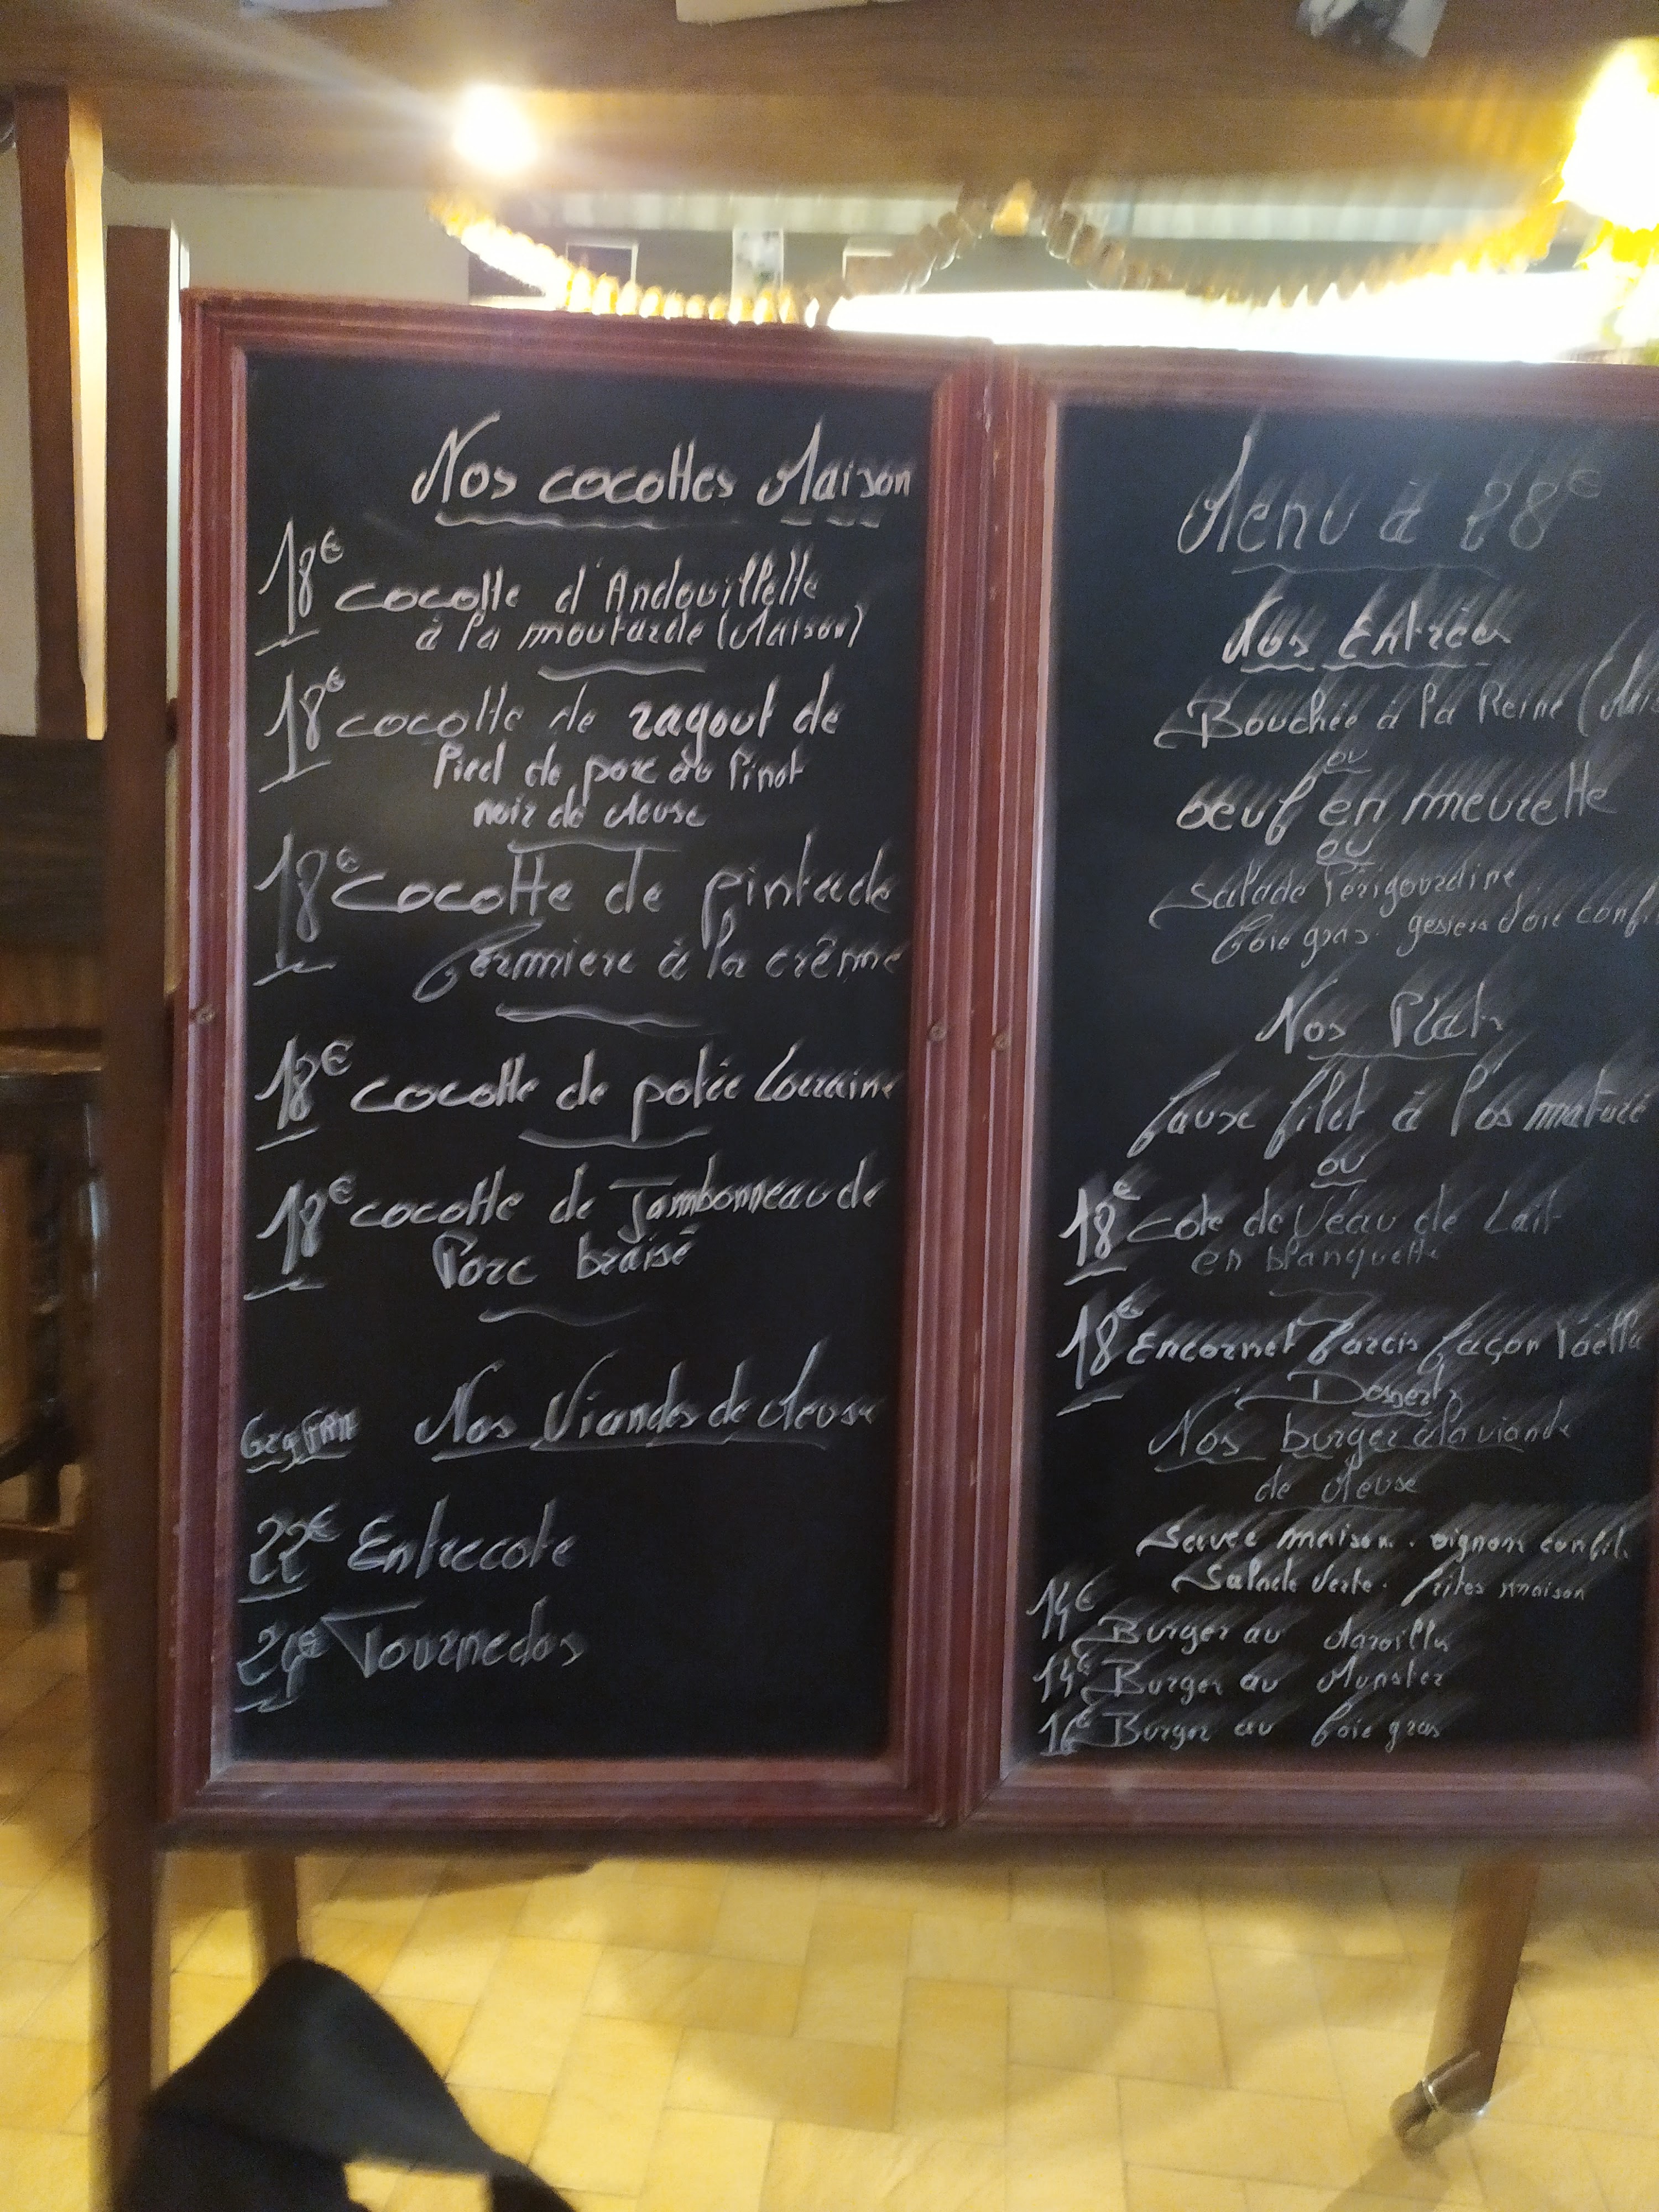 Nos cocottes Maison
18€ cocotte d'Andouillette
à la moutarde (Maison)
18€ cocotte de ragout de
Pied de porc au Pinot
noir de Meuse
18€ cocotte de pintade
fermiere à la crême
18€ cocotte de potée Lorraine
18€ cocotte de Jambonneau de
Porc braisé
Nos Viandes de Meuse
22€ Entrecote
24€ Tournedos
Menu à 28€
Nos Entrées
Bouchée à la Reine
ou
oeuf en meurette
ou
Salade Périgourdine
foie gras. gesiers d'oie
Nos Plats
faux filet à l'os maturé
ou
18€ Cote de Veau de Lait
en blanquette
18€ Encornet Farcis façon Paëlla
Desserts
Nos burger à la viande
de Meuse
maison. oignons confit.
Salade verte. frites maison
14€ Burger au Maroilles
14€ Burger au Munster
16€ Burger au foie gras